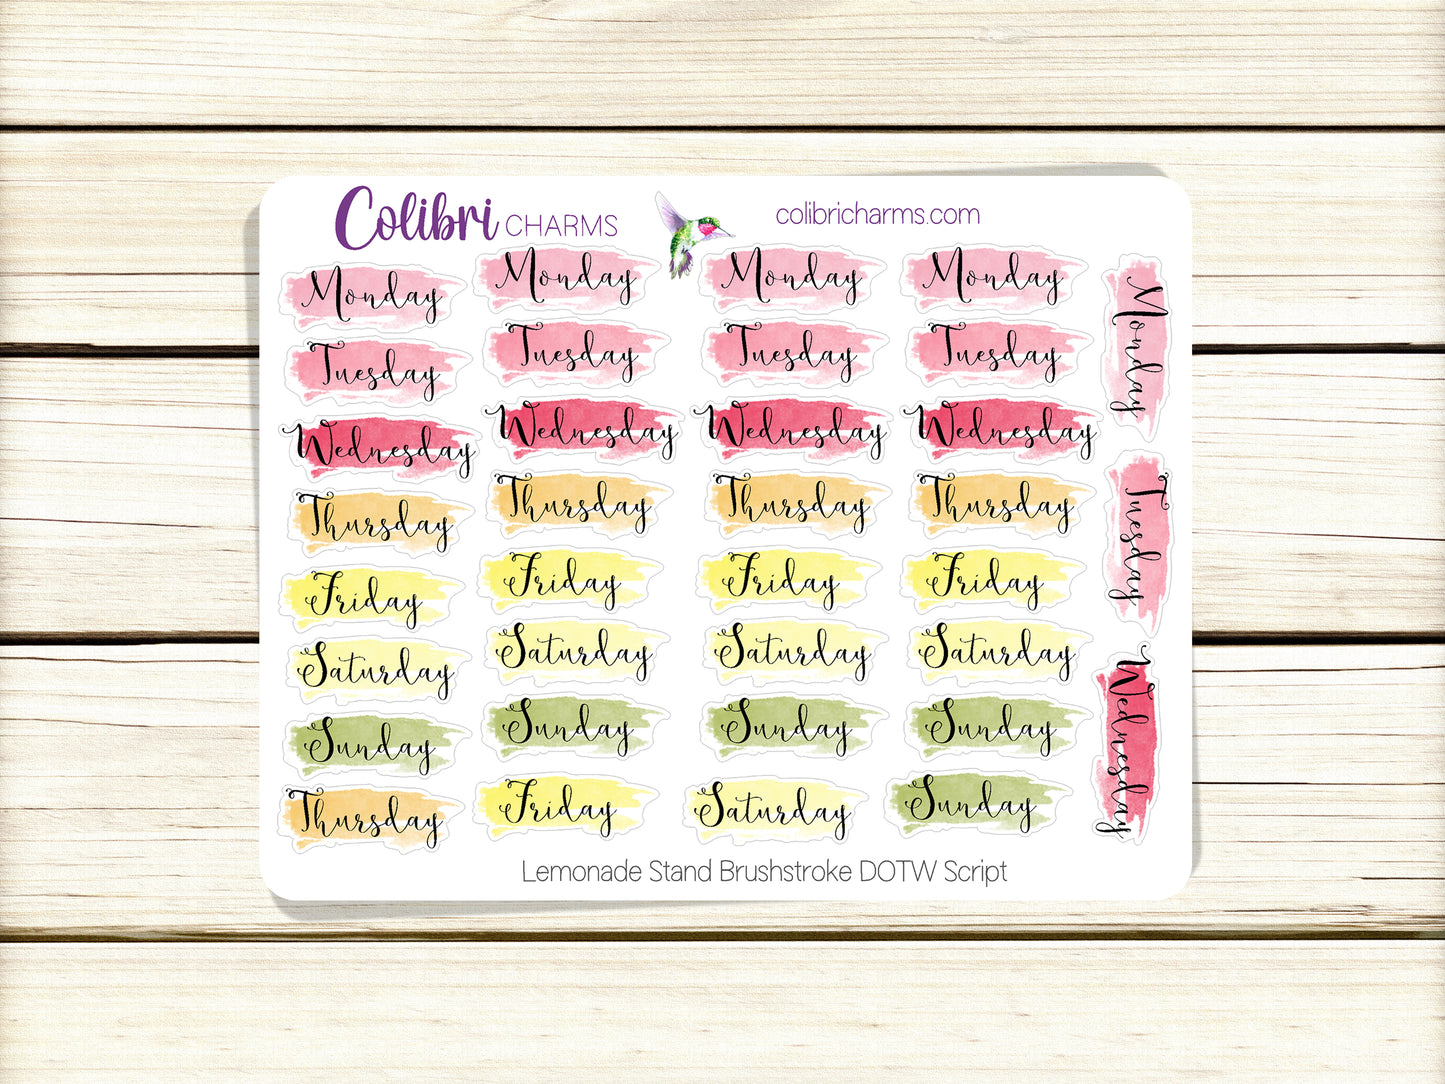 Colibri CHARMS
colibricharms.com
Monday Monday Monday Monday
Tuesday Tuesday Tuesday Tuesday
Wednesday Wednesday Wednesday Wednesday
Thursday Thursday Thursday Thursday
Friday Friday Friday Friday
Saturday Saturday Saturday Saturday
Sunday Sunday Sunday Sunday
Thursday Friday Saturday Sunday
Monday
Tuesday
Wednesday
Lemonade Stand Brushstroke DOTW Script